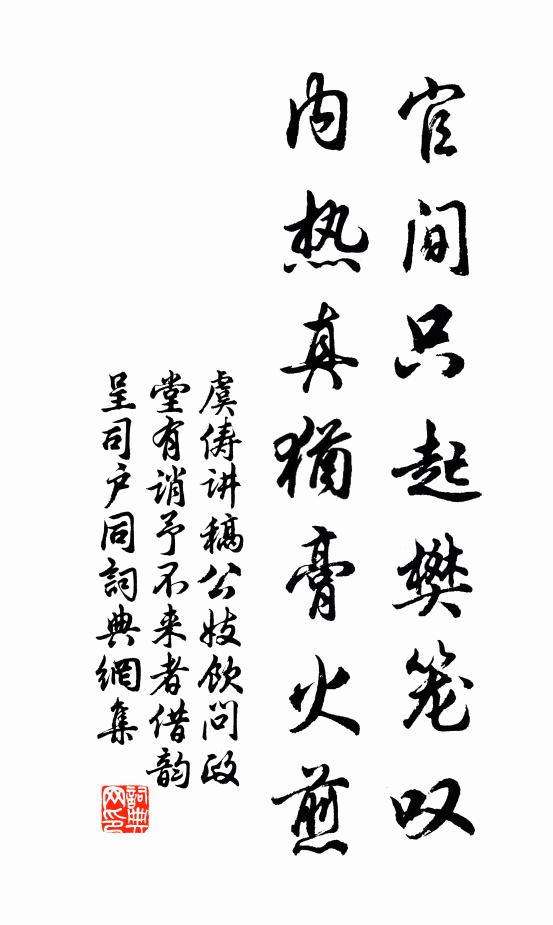 官间只起樊笼叹
内热真猶膏火煎
虞俦讲稿公妓饮问政
堂有诮予不来者借韵
呈司户同詞典網集
詞典
网印